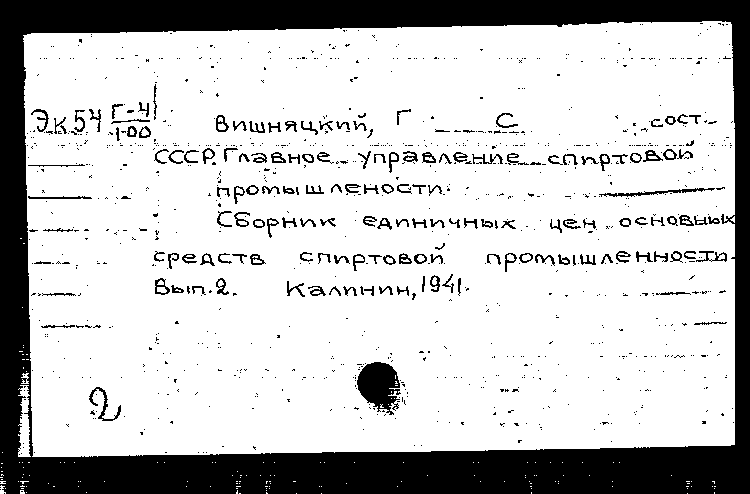 Эк54 Г-4
1-00
Вишняцкий, Г С сост.
СССР. Главное управление спиртовой
промышлености.
Сборник единичных цен основных
средств спиртовой промышленности.
Вып. 2. Калинин, 1941.
2